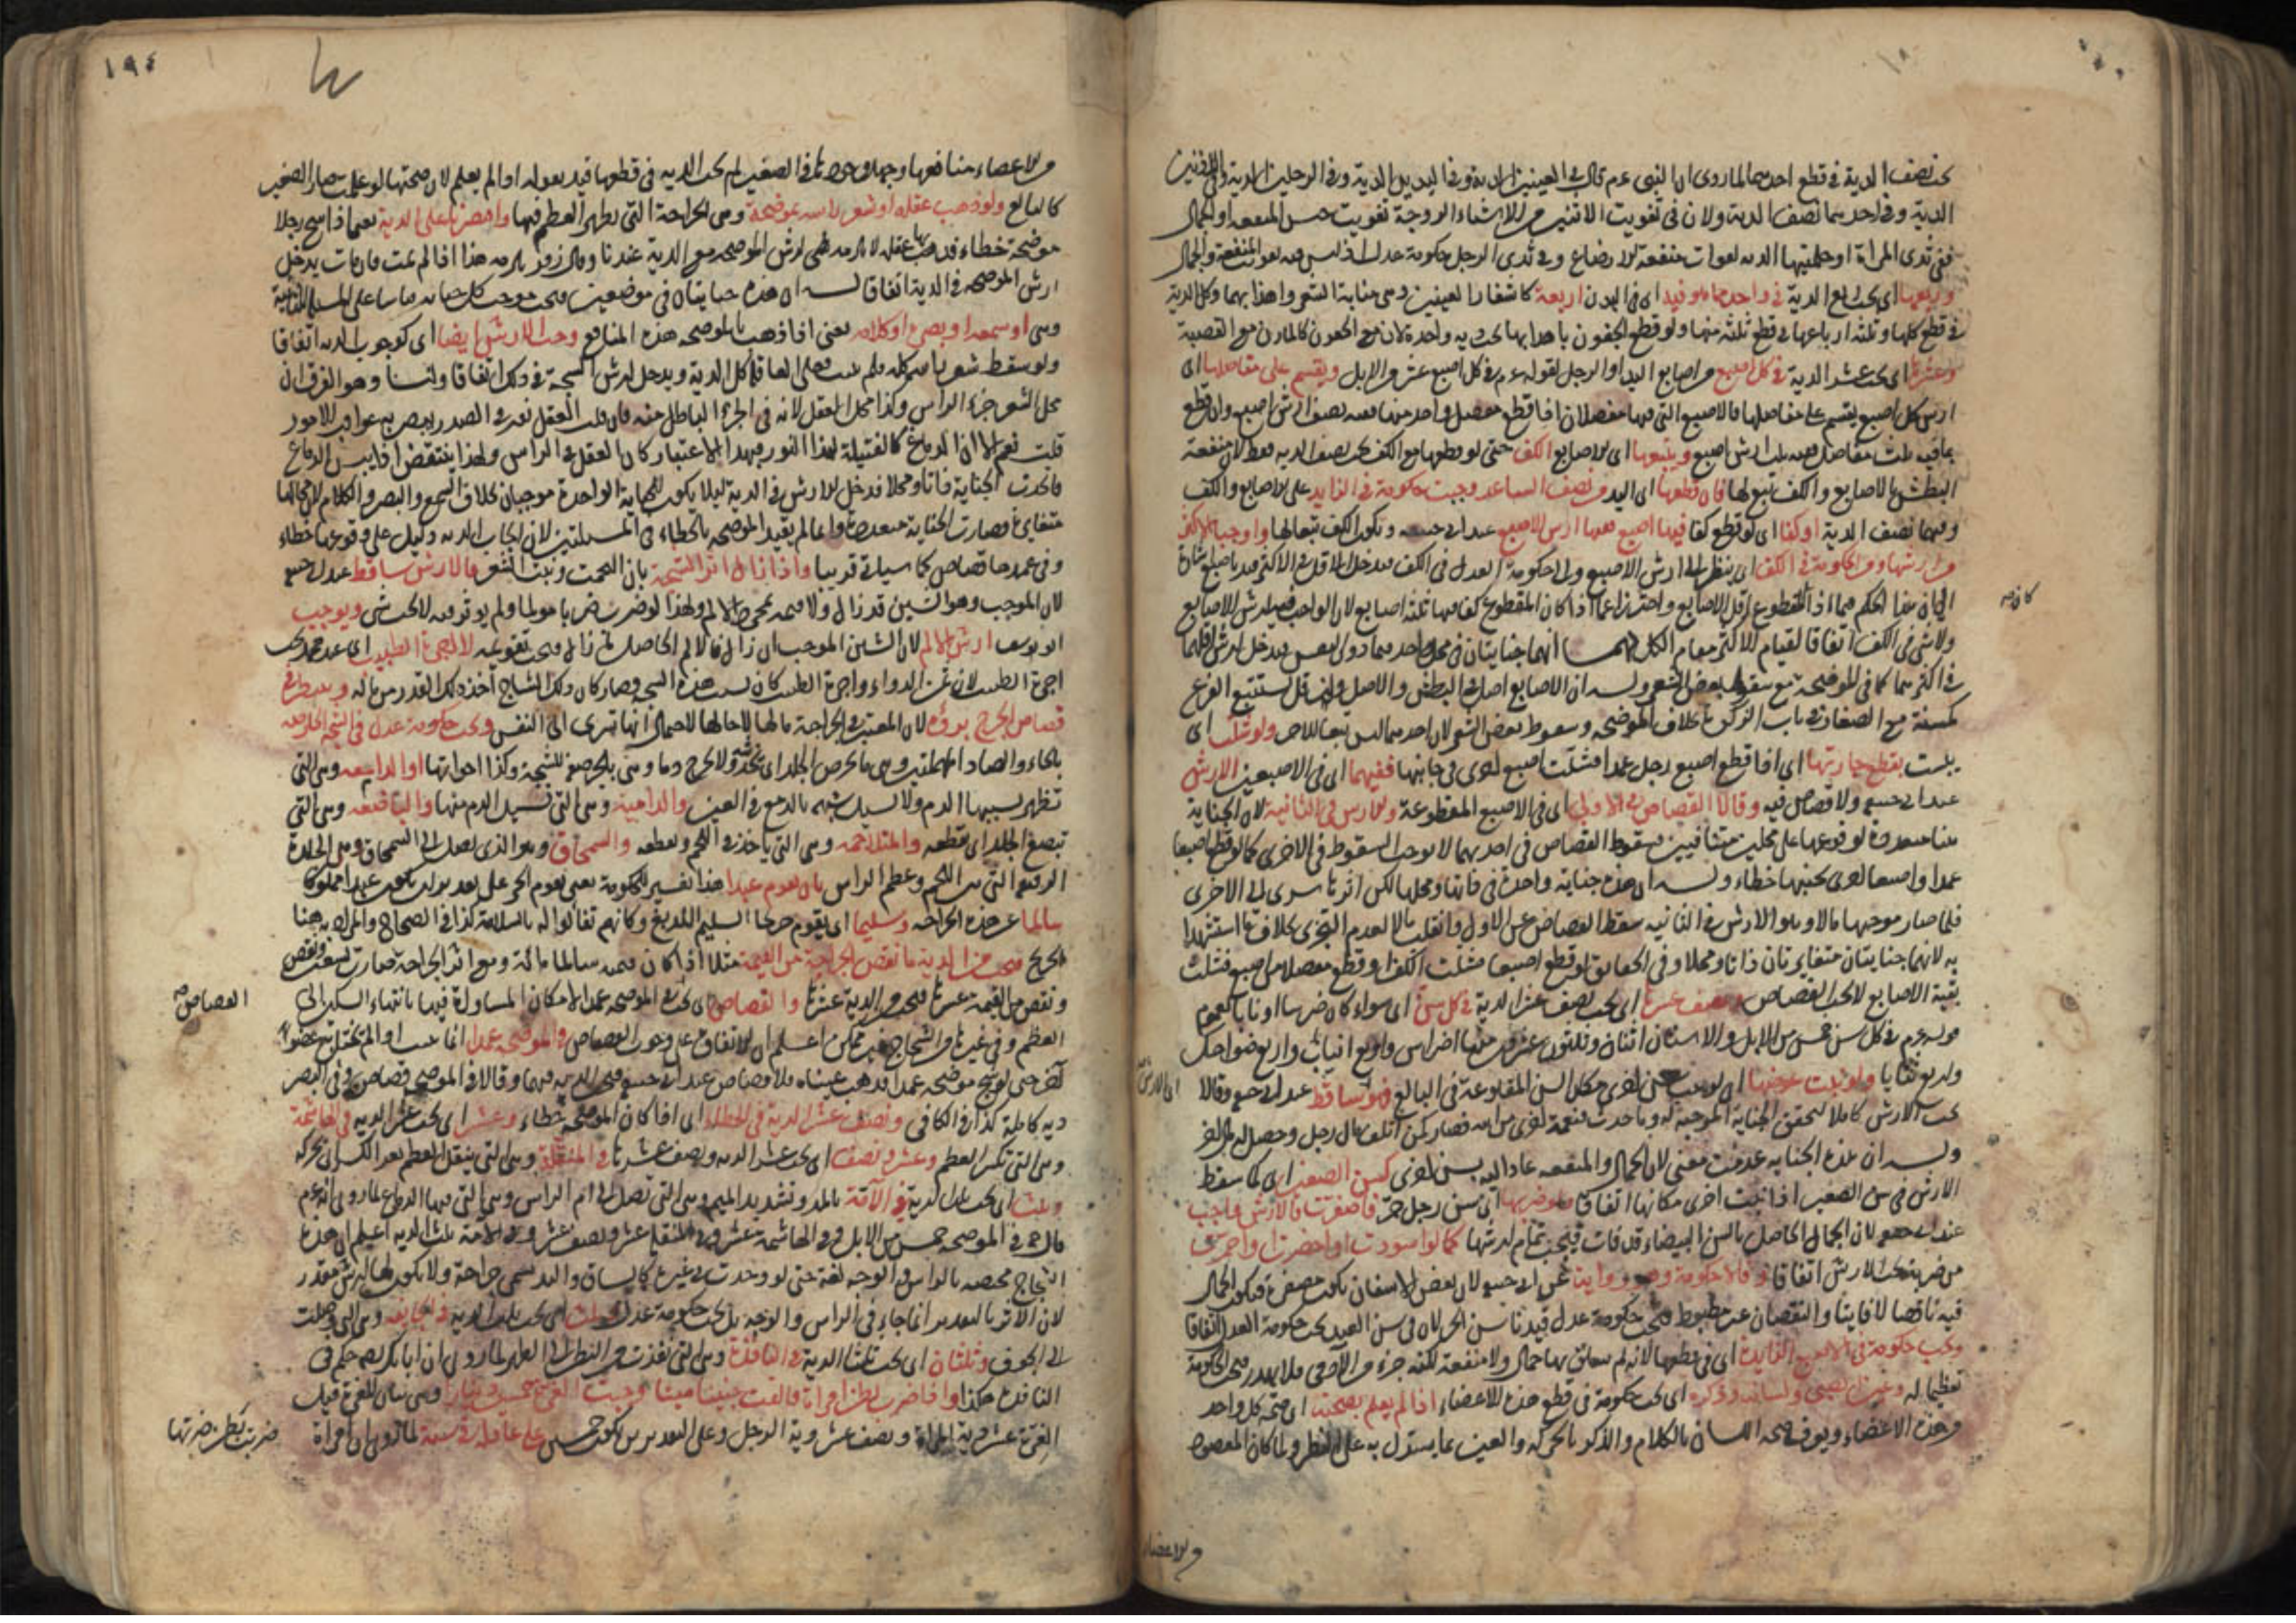 يجب نصف الدية في قطع احدهما لما روى ان النبي عم قال في العينين الدية وفي اليدين الدية وفي الرجلين الدية وفي الاذنين
الدية وفي احدهما نصف الدية ولان في تفويت الاثنين من الاشياء الزوجة تفويت جنس المنفعة او الجمال
ففي ثدي المراة او حلمتيها الدية لفوات منفعة الارضاع وفي ثدي الرجل حكومة عدل اذ ليس فيه تفويت المنفعة والجمال
وربعها اي يجب ربع الدية في واحد مما هو في البدن اربعة كاشفار العينين وهي منابة الشعر واهدابها وكل الدية
في قطع كلها وثلثة ارباعها في قطع ثلثة منها ولو قطع الجفون باهدابها يجب دية واحدة لان الجفون كالمارن مع القصبة
وعشرها اي يجب عشر الدية في كل اصبع من اصابع اليد او الرجل لقوله عم في كل اصبع عشر من الابل ويقسم على مفاصلها اي
ارش كل اصبع يقسم على مفاصلها فالاصبع التي فيها مفصلان اذا قطع مفصل واحد منها ففيه نصف ارش اصبع وان قطع
ما فيه ثلث مفاصل ففيه ثلث ارش اصبع ويتبعها اي الاصابع الكف حتى لو قطعها مع الكف يجب نصف الدية فقط لان منفعة
البطش بالاصابع والكف تبع لها فان قطعها اي اليد من نصف الساعد وجبت حكومة في الزايد على الاصابع والكف
وفيهما نصف الدية او كفا اي لو قطع كفا فيها اصبع ففيها ارش الاصبع عند ابي حنيفة ويكون الكف تبعا لها واوجبا الاكثر
من ارشها ومن الحكومة في الكف اي ينظر الى ارش الاصبع والى حكومة العدل في الكف فيدخل الاقل في الاكثر قيد باصبع
كان
ولا شيء في الكف اتفاقا لقيام الاكثر مقام الكل لهما انهما جنايتان في محل واحد
في اكثرهما كما في الموضحة مع سقوط بعض الشعر وله ان الاصابع اصل في البطش والاصل وان قل يستتبع الفرع
كمسنة مع الصغار في باب الزكوة بخلاف الموضحة وسقوط بعض الشعر لان احدهما ليس تبعا للاخر ولو شلت اي
يبست بقطع جارتها اي اذا قطع اصبع رجل عمدا فشلت اصبع اخرى في جانبها ففيهما اي في الاصبعين الارش
عند ابي حنيفة ولا قصاص فيه وقالا القصاص في الاولى اي في الاصبع المقطوعة والارش في الثانية لان الجناية
هنا متعددة لوقوعها على محلين متنافيين فسقوط القصاص في احديهما لا يوجب السقوط في الاخرى كما لو قطع اصبعا
عمدا واصبعا اخرى بجنبها خطاء وله ان هذه جناية واحدة في ذاتها ومحلها لكن اثرها سرى الى الاخرى
فلما صار موجبها مالا وهو الارش في الثانية سقط القصاص عن الاول وانقلب مالا لعدم التجزي بخلاف ما استشهدا
به لانهما جنايتان متغايرتان ذاتا ومحلا وفي الحقايق لو قطع اصبعا فشلت الكف او قطع مفصلا من اصبع فشلت
بقية الاصابع لا يجب القصاص ونصف عشرها اي يجب نصف عشر الدية في كل سن اي سواء كان ضرسا او نابا لعموم
قوله عم في كل سن خمس من الابل والاسنان اثنان وثلثون عشرون منها اضراس واربع انياب واربع ضواحك
واربع ثنايا ولو نبت عوضها اي لو نبت سن اخرى مكان السن المقلوعة في البالغ فهو ساقط عند ابي حنيفة وقالا
اي الارش
يجب الارش كاملا لتحقق الجناية الموجبة له وما حدث نعمة اخرى من الله فصار كمن اتلف مال رجل وحصل له مال اخر
وله ان هذه الجناية عدمت معنى لان الجمال والمنفعة عاد اليه بسن اخرى كسن الصغير اي كما سقط
الارش في سن الصغير اذا نبتت اخرى مكانها اتفاقا ولو ضربها اي سن رجل حر فاصفرت فالارش واجب
عند زفر لان الجمال الحاصل بالسن البيضاء قد فات فيجب تمام ارشها كما لو اسودت او اخضرت او احمرت
من ضربه يجب الارش اتفاقا وقالا حكومة وهو رواية عن ابي حنيفة لان بعض الاسنان يكون مصفرة فيكون الجمال
فيه ناقصا لا فايتا والنقصان غير مضبوط فيجب حكومة عدل قيدنا بسن الحر لان في سن العبد يجب حكومة العدل اتفاقا
ويجب حكومة في الاصبع الزايدة اي في قطعها لانه لم يتعلق بها جمال ولا منفعة لكنه جزء من الآدمي فلا يهدر فيجب الحكومة
تعظيما له وعين الصبي ولسانه وذكره اي يجب حكومة في قطع هذه الاعضاء اذا لم يعلم بصحته اي صحة كل واحد
من هذه الاعضاء ويعرف صحة اللسان بالكلام والذكر بالحركة والعين بما يستدل به على النظر ولما كان المقصود
من الاعضاء
١٩٤
من الاعضاء منافعها وجهل وجودها في الصغير لم يجب الدية في قطعها قيد بقوله اذا لم يعلم لان صحتها لو علمت صار الصغير
كالبالغ ولو ذهب عقله او شعر راسه بموضحة وهي الجراحة التي يظهر العظم فيها واقتصرنا على الدية يعني اذا شج رجلا
موضحة خطاء فذهب بها عقله لا يلزمه ارش الموضحة مع الدية عندنا وقال زفر يلزمه هذا اذا لم يمت فان مات يدخل
ارش الموضحة في الدية اتفاقا له ان هذه جنايتان في موضعين فيجب موجب كل جناية قياسا على المسئلة الثانية
وهي او سمعه او بصره او كلامه يعني اذا ذهب بالموضحة هذه المنافع وجب الارش ايضا اي كوجوب الدية اتفاقا
ولو سقط شعر راسه كله ولم ينبت فعلى العاقلة كل الدية ويدخل ارش الشجة في ذلك اتفاقا ولنا وهو الفرق ان
محل الشعر جزء الراس وكذا محل العقل لانه في الجزء الباطن منه فان قلت العقل نور في الصدر يبصر به عواقب الامور
قلت نعم الا ان الدماغ كالفتيلة لهذا النور فبهذا الاعتبار كان العقل في الراس ولهذا ينتقض اذا يبس الدماغ
فاتحدت الجناية ذاتا ومحلا فدخل الارش في الدية ليلا يكون للجناية الواحدة موجبان بخلاف السمع والبصر والكلام لان محالها
متغايرة فصارت الجناية متعددة وانما لم يقيد الموضحة بالخطاء في المسئلتين لان ايجاب الدية دليل على وقوعها خطاء
وفي عمدها قصاص كما سيأتي قريبا واذا زال اثر الشجة بان التحمت ونبت الشعر فالارش ساقط عند ابي حنيفة
لان الموجب وهو الشين قد زال ولا قيمة لمجرد الالم ولهذا لو ضرب ضربا مولما ولم يؤثر فيه لا يجب شيء ويوجب
ابو يوسف ارش الالم لان الشين الموجب ان زال فالالم الحاصل ما زال فيجب تقويمه لا اجرة الطبيب اي عند محمد يجب
اجرة الطبيب لان ثمن الدواء واجرة الطبيب كان بسبب هذه الشجة وصار كان ذلك الشاج اخذ ذلك القدر من ماله
قصاص الجرح برؤه لان المعتبر في الجراحة مالها لا حالها لاحتمال انها تسرى الى النفس ويجب حكومة عدل في الشجة الحارصة
بالحاء والصاد المهملتين وهي ما تحرص الجلد اي تخدشه ولا تخرج دما وهي بالجر صفة للشجة وكذا اخواتها او الدامعة وهي التي
تظهر بسببها الدم ولا تسيل شبه بالدمع في العين والدامية وهي التي تسيل الدم منها والباضعة وهي التي
تبضع الجلد اي تقطعه والمتلاحمة وهي التي ياخذ في اللحم وتقطعه والسمحاق وهو الذي تصل الى السمحاق وهي الجلدة
الرقيقة التي بين اللحم وعظم الراس بان يقوم عبدا هذا تفسير للحكومة يعني يقوم الحر على تقدير ان يكون عبدا مملوكا
سالما عن هذه الجراحة وسليما اي يقوم جريحا السليم اللديغ وكانهم تفالوا له بالسلامة كذا في الصحاح والمراد به هنا
الجريح فيجب من الدية ما نقص الجراحة من القيمة مثلا اذا كان قيمته سالما مائة ومع اثر الجراحة صارت تسعين
ونقص من القيمة عشرها فيجب من الدية عشرها والقصاص اي يجب في الموضحة عمدا لامكان المساواة فيها بانتهاء السكين الى
القصاص
العظم وفي غيرها من الشجاج غير ممكن اعلم ان الاتفاق على وجوب القصاص في الموضحة عمدا انما يجب اذا لم يختل به عضو
آخر حتى لو شج موضحة عمدا فذهب عيناه فلا قصاص عند ابي حنيفة فيجب الدية فيهما وقالا في الموضحة قصاص وفي البصر
دية كاملة كذا في الكافي ونصف عشر الدية في الخطاء اي اذا كان الموضحة خطاء وعشر اي يجب عشر الدية في الهاشمة
وهي التي تكسر العظم وعشر ونصف اي يجب عشر الدية ونصف عشرها في المنقلة وهي التي ينقل العظم بعد الكسر اي تحركه
وثلث اي يجب ثلث الدية في الآمة بالمد وتشديد الميم وهي التي تصل الى ام الراس وهي التي فيها الدماغ لما روى انه عم
قال في الموضحة خمس من الابل وفي الهاشمة عشر وفي المنقلة عشر ونصف عشر وفي الآمة ثلث الدية اعلم ان هذه
الشجاج مختصة بالراس والوجه لغة حتى لو وجدت في غيرهما كالساق واليد تسمى جراحة ولا يكون لها ارش مقدر
لان الاثر بالتقدير انما جاء في الراس والوجه بل يجب حكومة عدل وثلث اي يجب ثلث الدية في الجايفة وهي التي وصلت
الى الجوف وثلثان اي يجب ثلثا الدية في النافذة وهي التي نفذت من البطن الى الظهر لما روى ان ابا بكر رضه حكم في
النافذة هكذا واذا ضرب بطن امراة فالقت جنينا ميتا وجبت الغرة خمسون دينارا
الغرة عشر دية المراة ونصف عشر دية الرجل وعلى التقديرين يكون خمسين على عاقلته في سنة لما روى ان امراة
ضربت بطن ضرتها